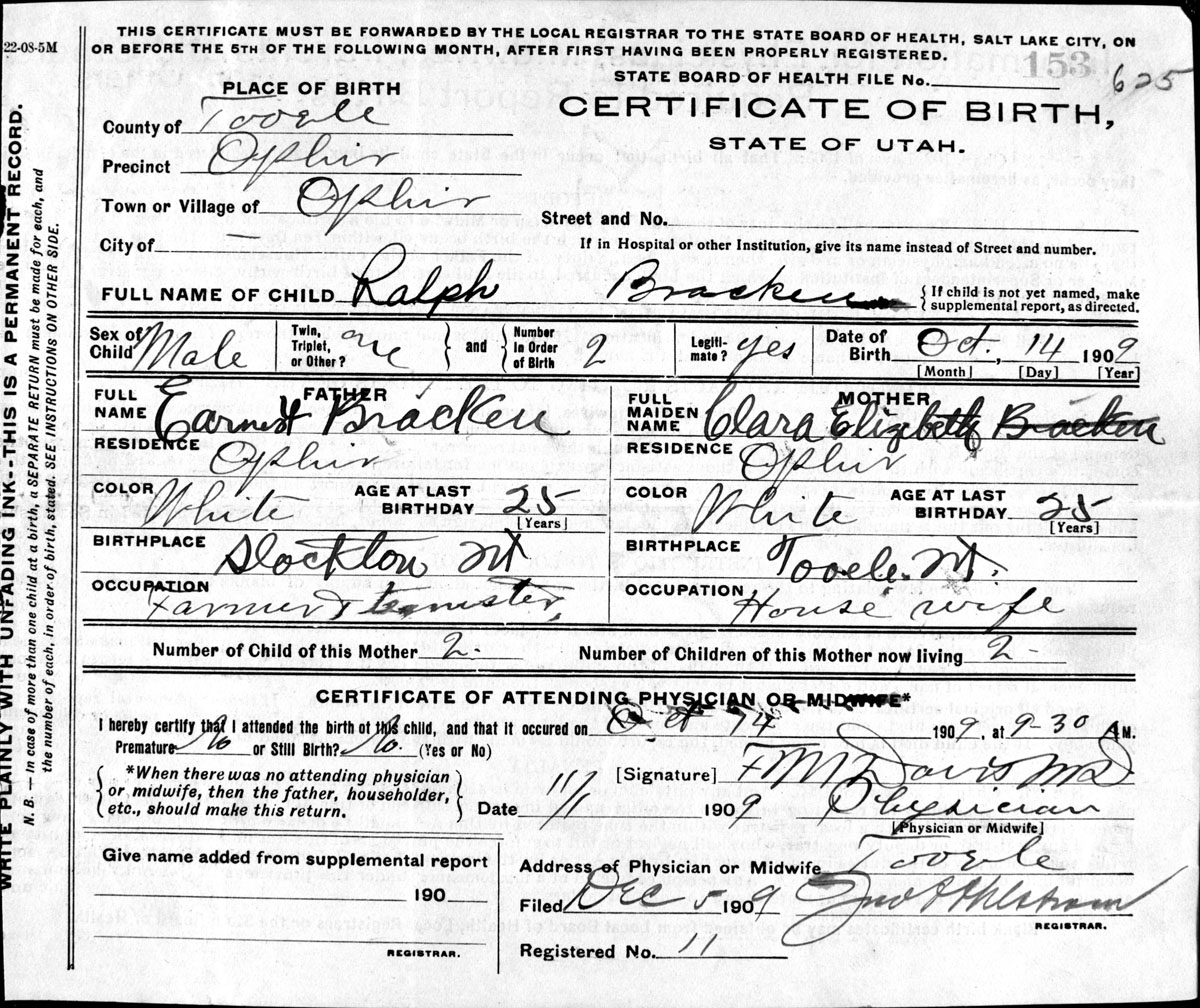 22-08-5M
THIS CERTIFICATE MUST BE FORWARDED BY THE LOCAL REGISTRAR TO THE STATE BOARD OF HEALTH, SALT LAKE CITY, ON
OR BEFORE THE 5TH OF THE FOLLOWING MONTH, AFTER FIRST HAVING BEEN PROPERLY REGISTERED.
153
STATE BOARD OF HEALTH FILE No. 625
PLACE OF BIRTH
CERTIFICATE OF BIRTH,
STATE OF UTAH.
County of Tooele
Precinct Ophir
Town or Village of Ophir
Street and No.
City of
If in Hospital or other Institution, give its name instead of Street and number.
FULL NAME OF CHILD Ralph Bracken { If child is not yet named, make supplemental report, as directed.
Sex of Child Male Twin, Triplet, or Other? one } and { Number in Order of Birth 2 Legiti- mate? yes Date of Birth Oct., 14 1909
[Month] [Day] [Year]
FATHER MOTHER
FULL NAME Earnest Bracken FULL MAIDEN NAME Clara Elizabeth Bracken
RESIDENCE Ophir RESIDENCE Ophir
COLOR White AGE AT LAST BIRTHDAY 25 [Years] COLOR White AGE AT LAST BIRTHDAY 25 [Years]
BIRTHPLACE Stockton Ut BIRTHPLACE Tooele Ut.
OCCUPATION Farmer & teamster, OCCUPATION House wife
Number of Child of this Mother 2- Number of Children of this Mother now living 2-
CERTIFICATE OF ATTENDING PHYSICIAN OR MIDWIFE*
I hereby certify that I attended the birth of this child, and that it occurred on Oct 14 1909, at 9-30 A M.
Premature No or Still Birth? No. (Yes or No)
{ *When there was no attending physician or midwife, then the father, householder, etc., should make this return. }
[Signature] F M Davis MD
Date 11/1 1909 Physician
[Physician or Midwife]
Give name added from supplemental report
190
REGISTRAR.
Address of Physician or Midwife Tooele
Filed Dec 5 1909 Jno A Ahlstrom
REGISTRAR.
Registered No. 11
WRITE PLAINLY WITH UNFADING INK--THIS IS A PERMANENT RECORD.
N. B. — In case of more than one child at a birth, a SEPARATE RETURN must be made for each, and
the number of each, in order of birth, stated. SEE INSTRUCTIONS ON OTHER SIDE.